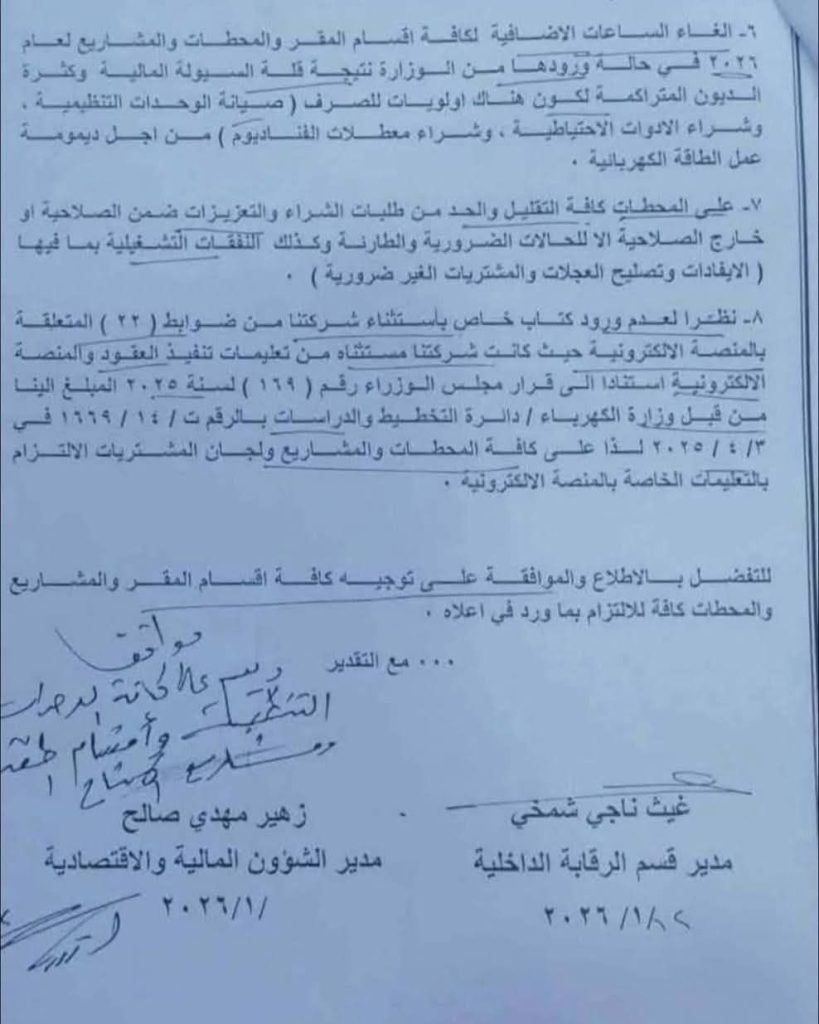 ٦- الغاء الساعات الاضافية لكافة اقسام المقر والمحطات والمشاريع لعام
٢٠٢٦ في حالة ورودها من الوزارة نتيجة قلة السيولة المالية وكثرة
الديون المتراكمة لكون هناك اولويات للصرف ( صيانة الوحدات التنظيمية ،
وشراء الادوات الاحتياطية ، وشراء معطلات الفناديوم ) من اجل ديمومة
عمل الطاقة الكهربائية .
٧- على المحطات كافة التقليل والحد من طلبات الشراء والتعزيزات ضمن الصلاحية او
خارج الصلاحية الا للحالات الضرورية والطارئة وكذلك النفقات التشغيلية بما فيها
( الايفادات وتصليح العجلات والمشتريات الغير ضرورية ) .
٨- نظرا لعدم ورود كتاب خاص بأستثناء شركتنا من ضوابط ( ٢٢ ) المتعلقة
بالمنصة الالكترونية حيث كانت شركتنا مستثناه من تعليمات تنفيذ العقود والمنصة
الالكترونية استنادا الى قرار مجلس الوزراء رقم ( ١٦٩ ) لسنة ٢٠٢٥ المبلغ الينا
من قبل وزارة الكهرباء / دائرة التخطيط والدراسات بالرقم ت / ١٤ / ١٦٦٩ في
٢٠٢٥ / ٤ /٣ لذا على كافة المحطات والمشاريع ولجان المشتريات الالتزام
بالتعليمات الخاصة بالمنصة الالكترونية .
للتفضل بالاطلاع والموافقة على توجيه كافة اقسام المقر والمشاريع
والمحطات كافة للالتزام بما ورد في اعلاه .
... مع التقدير
موافق
كافة الوحدات
التنظيمية وأقسام
ومشاريع
غيث ناجي شمخي
مدير قسم الرقابة الداخلية
٢٠٢٦/١/
زهير مهدي صالح
مدير الشؤون المالية والاقتصادية
٢٠٢٦/١/